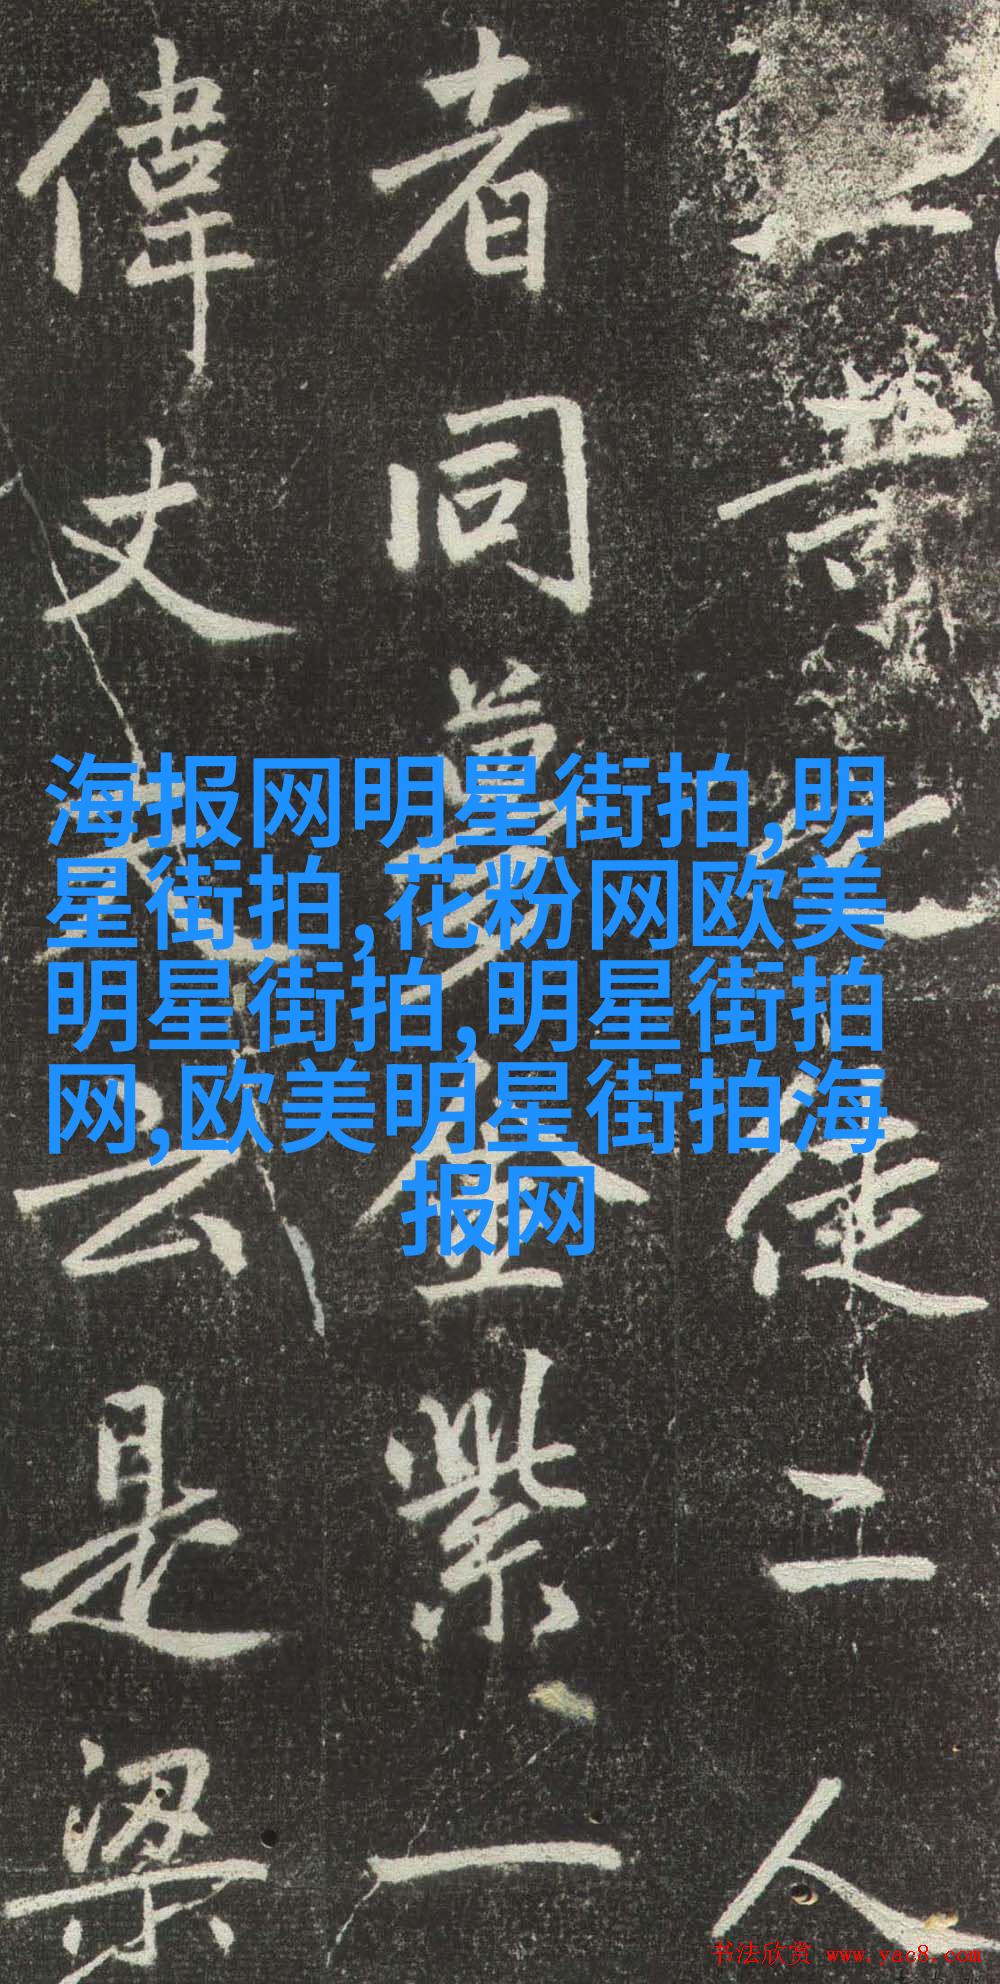 海报网明星街拍,明
星街拍,花粉网欧美
明星街拍,明星街拍
网,欧美明星街拍海
报网
之徒二人
者同夢金紫一
偉丈夫云是梁
书法欣赏 www.yac8.com